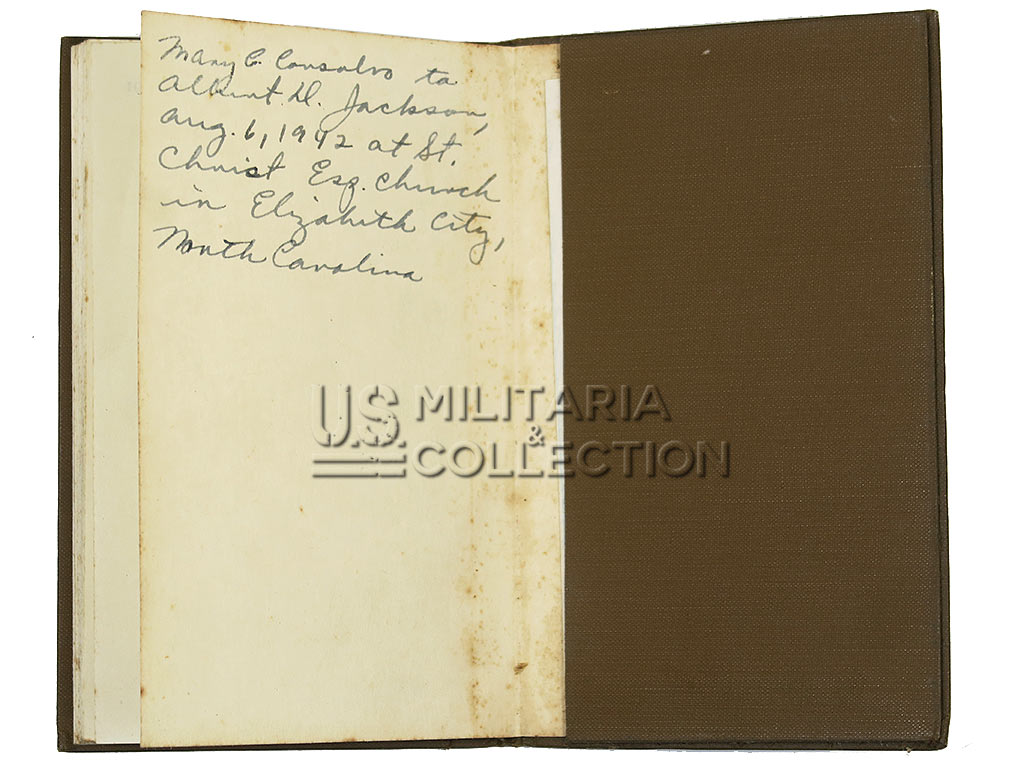 Mary C. Consolvo to
Albert D. Jackson,
Aug. 6, 1942 at St.
Christ Esp. Church
in Elizabeth City,
North Carolina
U.S. MILITARIA
& COLLECTION